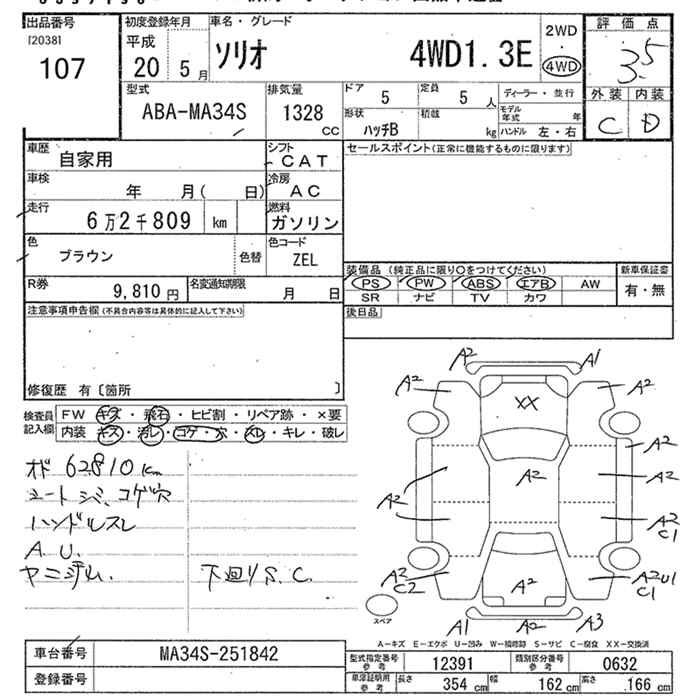 出品番号
[2038]
107
初度登録年月
平成
20 5 月
車名・グレード
ソリオ 4WD1.3E
2WD
・
4WD
評価点
3.5
外装 内装
C D
型式
ABA-MA34S
排気量
1328
CC
ドア 5
定員 5 人
形状 ハッチB
積載 kg
ディーラー・並行
モデル年式 年
ハンドル 左・右
車歴
自家用
シフト
CAT
セールスポイント(正常に機能するものに限ります)
車検
年 月( 日)
冷房
AC
走行
6万2千809 km
燃料
ガソリン
色
ブラウン
色替
色コード
ZEL
R券
9,810 円
名変通知期限
月 日
装備品 (純正品に限り○をつけてください)
PS PW ABS エアB AW
SR ナビ TV カワ
新車保証書
有・無
後日品
注意事項申告欄(不具合内容等は具体的に記入して下さい)
修復歴 有〔箇所 〕
検査員記入欄
FW キズ・飛石・ヒビ割・リペア跡・×要
内装 キズ・汚レ・コゲ・穴・スレ・キレ・破レ
オド 62810 km
シート シミ、コゲ穴
ハンドルスレ
A.U.
ヤニジム.
下回りS.C.
A2 A1
A2 A2
XX
A2
A2 A2 A2
A2
C1
A2
C2
A2U1
C1
A2
A1 A2 A3
スペア
A-キズ E-エクボ U-凹み W-補修跡 S-サビ C-腐食 XX-交換済
車台番号 MA34S-251842
登録番号
型式指定番号 参考 12391
類別区分番号 参考 0632
車庫証明用 参考 長さ 354 cm 幅 162 cm 高さ 166 cm